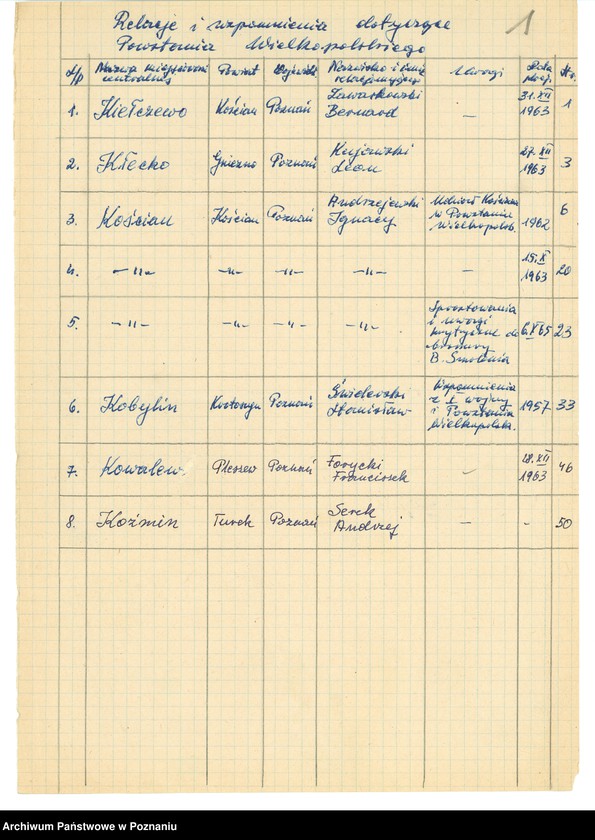 Relacje i wspomnienia dotyczące
Powstania Wielkopolskiego
1
L/p Nazwa miejscowości centralnej Powiat Wojewódz. Nazwisko i imię relacjonującego Uwagi Data Str.
1. Kiełczewo Kościan Poznań Zawartowski Bernard — 31.XII 1963 1
2. Kłecko Gniezno Poznań Kujawski Leon — 27.XII 1963 3
3. Kościan Kościan Poznań Andrzejewski Ignacy Udział Kościana w Powstaniu Wielkopolsk. 1962 6
4. —"— —"— —"— —"— — 15.X 1963 20
5. —"— —"— —"— —"— Sprostowania i uwagi krytyczne do broszury B. Smolenia 6.XI 65 23
6. Kobylin Krotoszyn Poznań Świderski Stanisław Wspomnienia z I wojny i Powstania Wielkopolsk. 1957 33
7. Kowalew Pleszew Poznań Forycki Franciszek — 28.XII 1963 46
8. Koźmin Turek Poznań Serek Andrzej — - 50
Archiwum Państwowe w Poznaniu